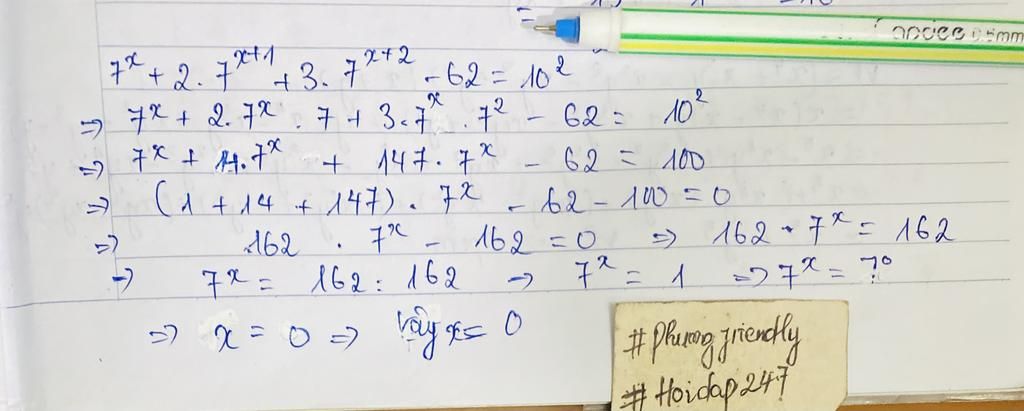 7^x + 2. 7^{x+1} + 3. 7^{x+2} - 62 = 10^2
=> 7^x + 2. 7^x . 7 + 3. 7^x . 7^2 - 62 = 10^2
=> 7^x + 14. 7^x + 147. 7^x - 62 = 100
=> (1 + 14 + 147). 7^x - 62 - 100 = 0
=> 162 . 7^x - 162 = 0 => 162 . 7^x = 162
=> 7^x = 162 : 162 => 7^x = 1 => 7^x = 7^0
=> x = 0 => Vậy x = 0
#Phuongfriendly
#Hoidap247